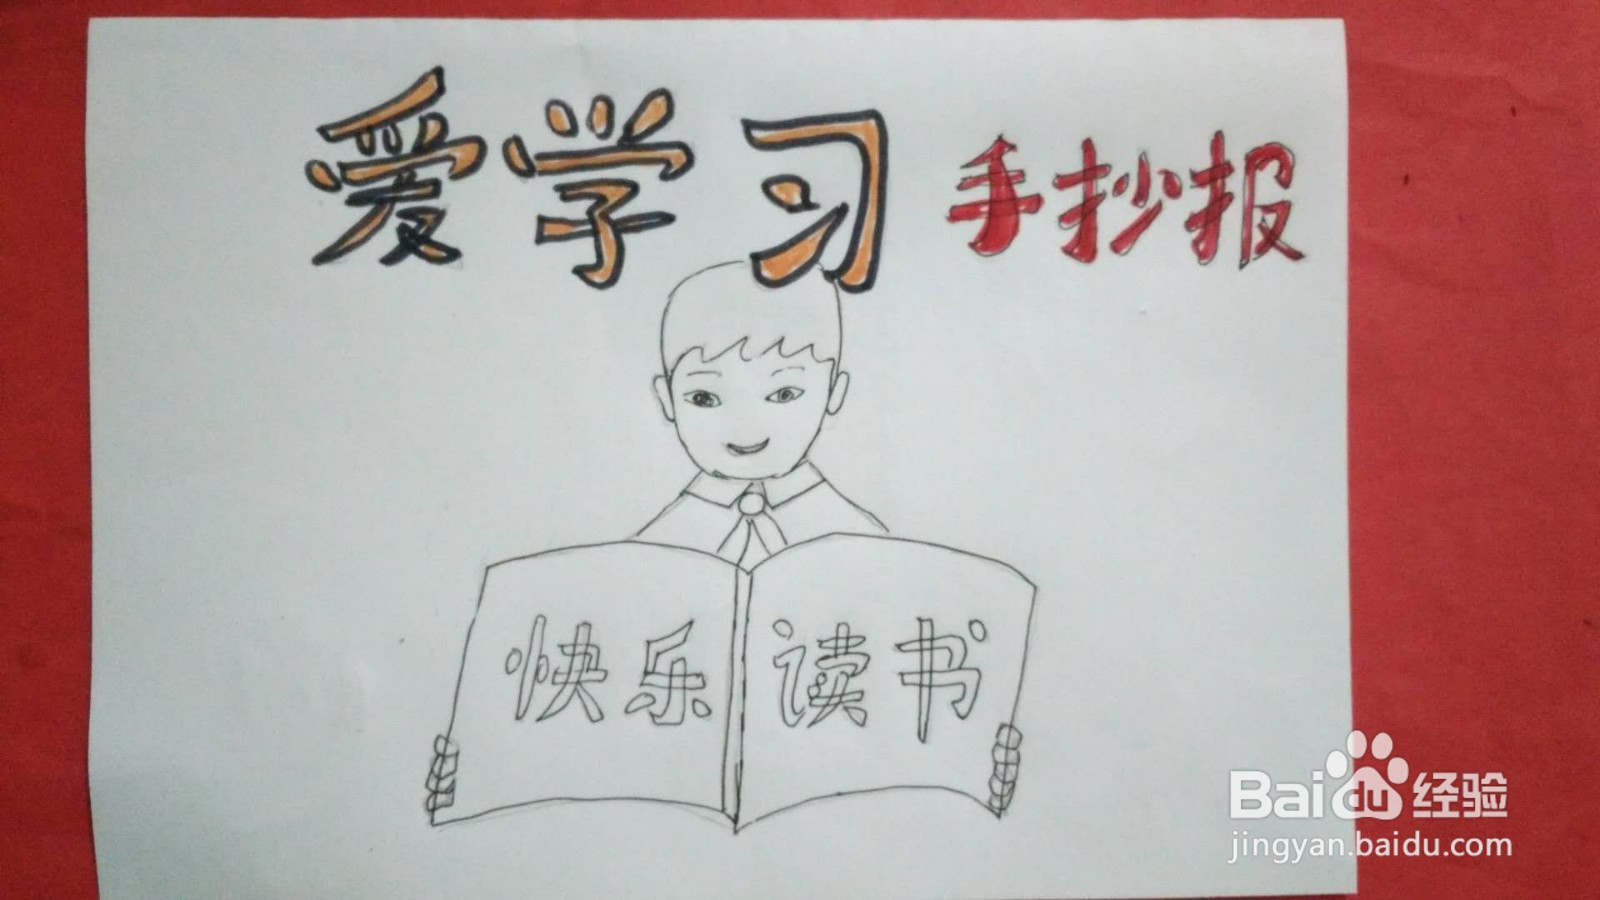 爱学习 手抄报
快乐 读书
Baidu 经验
jingyan.baidu.com